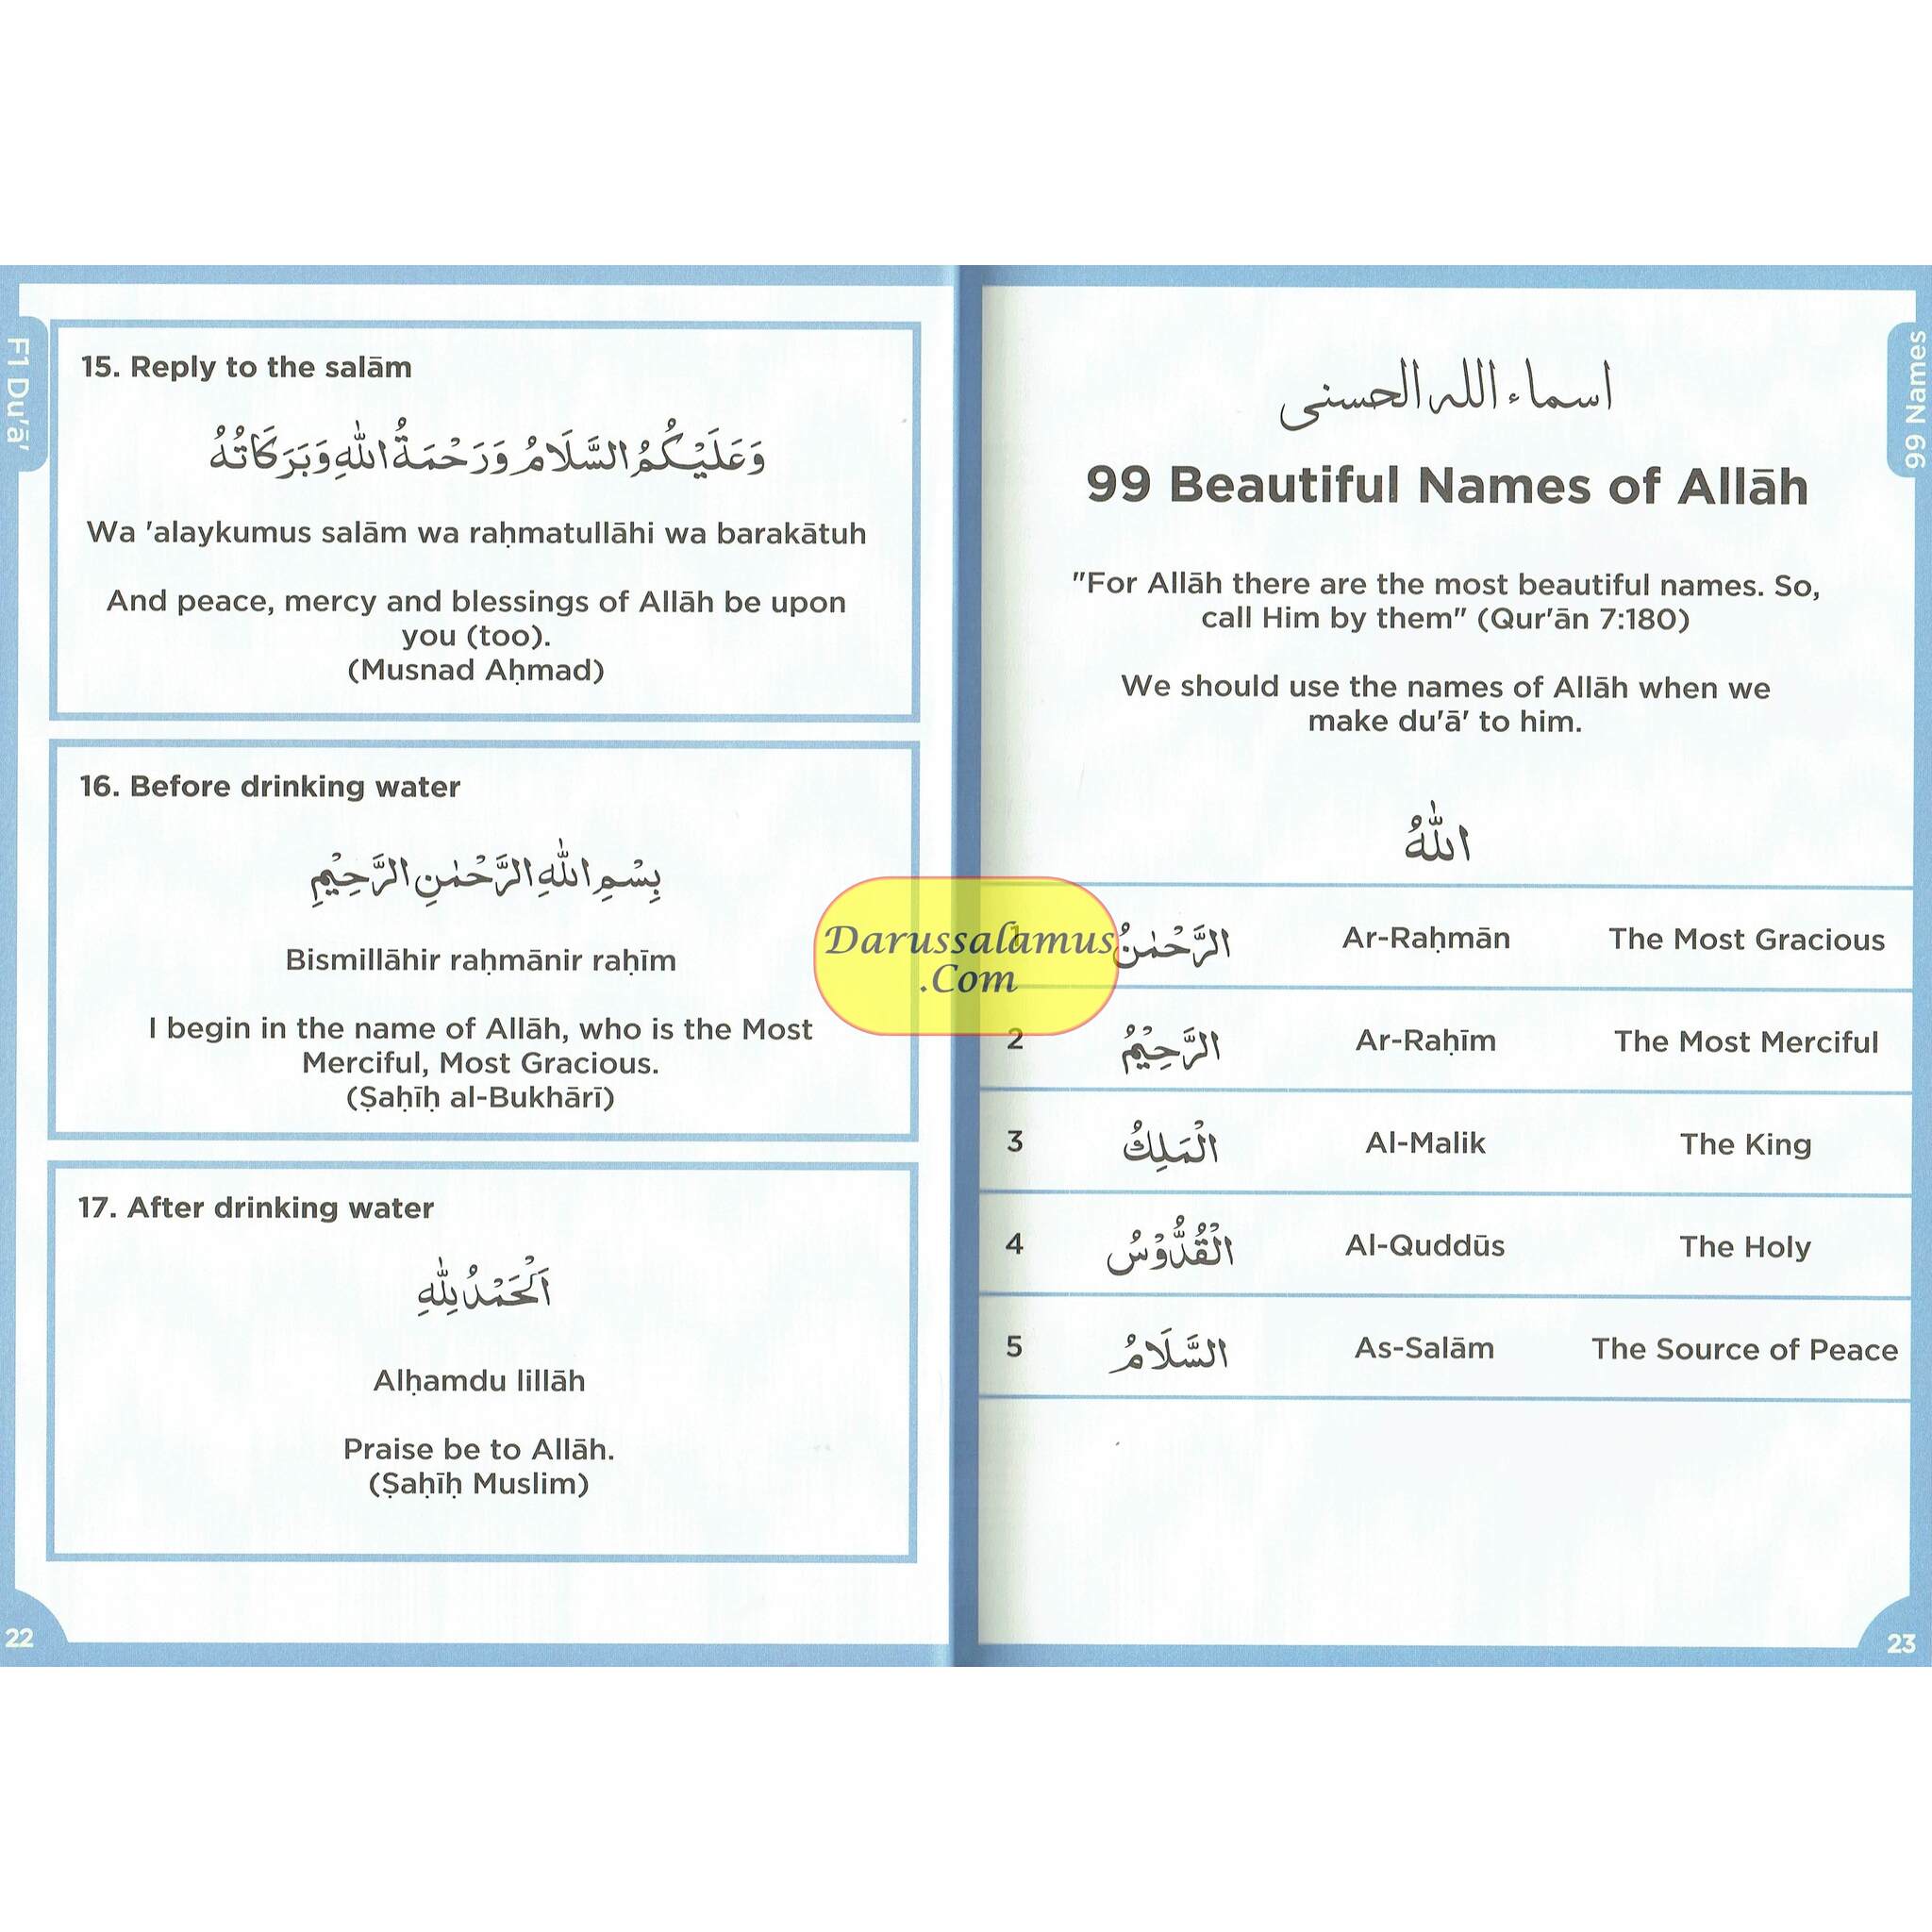 F1 Du'ā'
15. Reply to the salām
وَعَلَيْكُمُ السَّلَامُ وَرَحْمَةُ اللّٰهِ وَبَرَكَاتُهُ
Wa 'alaykumus salām wa raḥmatullāhi wa barakātuh
And peace, mercy and blessings of Allāh be upon
you (too).
(Musnad Aḥmad)
16. Before drinking water
بِسْمِ اللّٰهِ الرَّحْمٰنِ الرَّحِيْمِ
Bismillāhir raḥmānir raḥīm
I begin in the name of Allāh, who is the Most
Merciful, Most Gracious.
(Ṣaḥīḥ al-Bukhārī)
17. After drinking water
اَلْحَمْدُ لِلّٰهِ
Alḥamdu lillāh
Praise be to Allāh.
(Ṣaḥīḥ Muslim)
22
99 Names
اسماء الله الحسنى
99 Beautiful Names of Allāh
"For Allāh there are the most beautiful names. So,
call Him by them" (Qur'ān 7:180)
We should use the names of Allāh when we
make du'ā' to him.
اللّٰهُ
1 الرَّحْمٰنُ Ar-Raḥmān The Most Gracious
2 الرَّحِيْمُ Ar-Raḥīm The Most Merciful
3 الْمَلِكُ Al-Malik The King
4 الْقُدُّوْسُ Al-Quddūs The Holy
5 السَّلَامُ As-Salām The Source of Peace
23
Darussalamus
.Com